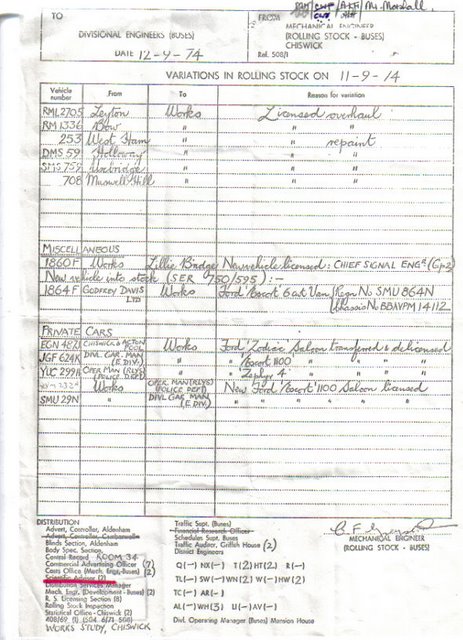 TO
DIVISIONAL ENGINEERS (BUSES)
DATE 12-9-74
Mr Marshall.
FROM
MECHANICAL ENGINEER
(ROLLING STOCK - BUSES)
CHISWICK
Ref. 508/1
VARIATIONS IN ROLLING STOCK ON 11-9-74
Vehicle number From To Reason for variation
RML 2705 Leyton Works Licensed overhaul
RM 1336 Bow " " "
253 West Ham " " repaint
DMS 59 Holloway " " "
SMS 759 Uxbridge " " "
708 Muswell Hill " " "
MISCELLANEOUS
1860F Works Lillie Bridge New vehicle licensed: CHIEF SIGNAL ENGR (Gp2)
New vehicle into stock (SER 750/595) :-
1864F GODFREY DAVIS LTD Works Ford 'Escort' 6 cwt Van Regn. No SMU 864N
Chassis No BBAVPM 14112
PRIVATE CARS
CHISWICK & ACTON POOL Works Ford 'Zodiac' Saloon transferred & delicensed
JGF 624K DIVL. GAR. MAN. (E. DIV.) " " 'Escort 1100' " " "
YUC 299H OPER MAN (RLYS) (POLICE DEPT) " " 'Zephyr 4' " " "
Works OPER MAN (RLYS) (POLICE DEPT) New Ford 'Escort' 1100 Saloon licensed
SMU 29N " DIVL GAR MAN (E. DIV.) " " " " " "
DISTRIBUTION
Advert. Controller, Aldenham
Advert. Controller, Camberwell
Blinds Section, Aldenham
Body Spec. Section,
Control Record ROOM 34
Commercial Advertising Officer (7)
Costs Office (Mech. Engr.-Buses) (2)
Scientific Adviser (2)
Distribution Services Manager
Mech. Engr. (Development - Buses) (2)
R. S. Licensing Section (8)
Rolling Stock Inspection
Statistical Office - Chiswick (2)
WORKS STUDY, CHISWICK
Traffic Supt. (Buses)
Financial Research Officer
Schedules Supt. Buses
Traffic Auditor, Griffith House (2)
District Engineers
Q(—) NX(—) T(2) HT(2) R(—)
TL(—) SW(—) WN(2) W(—) HW(2)
TC(—) AR(—)
AL(—) WH(3) U(—) AV(—)
Divl. Operating Manager (Buses) Mansion House
MECHANICAL ENGINEER
(ROLLING STOCK - BUSES)